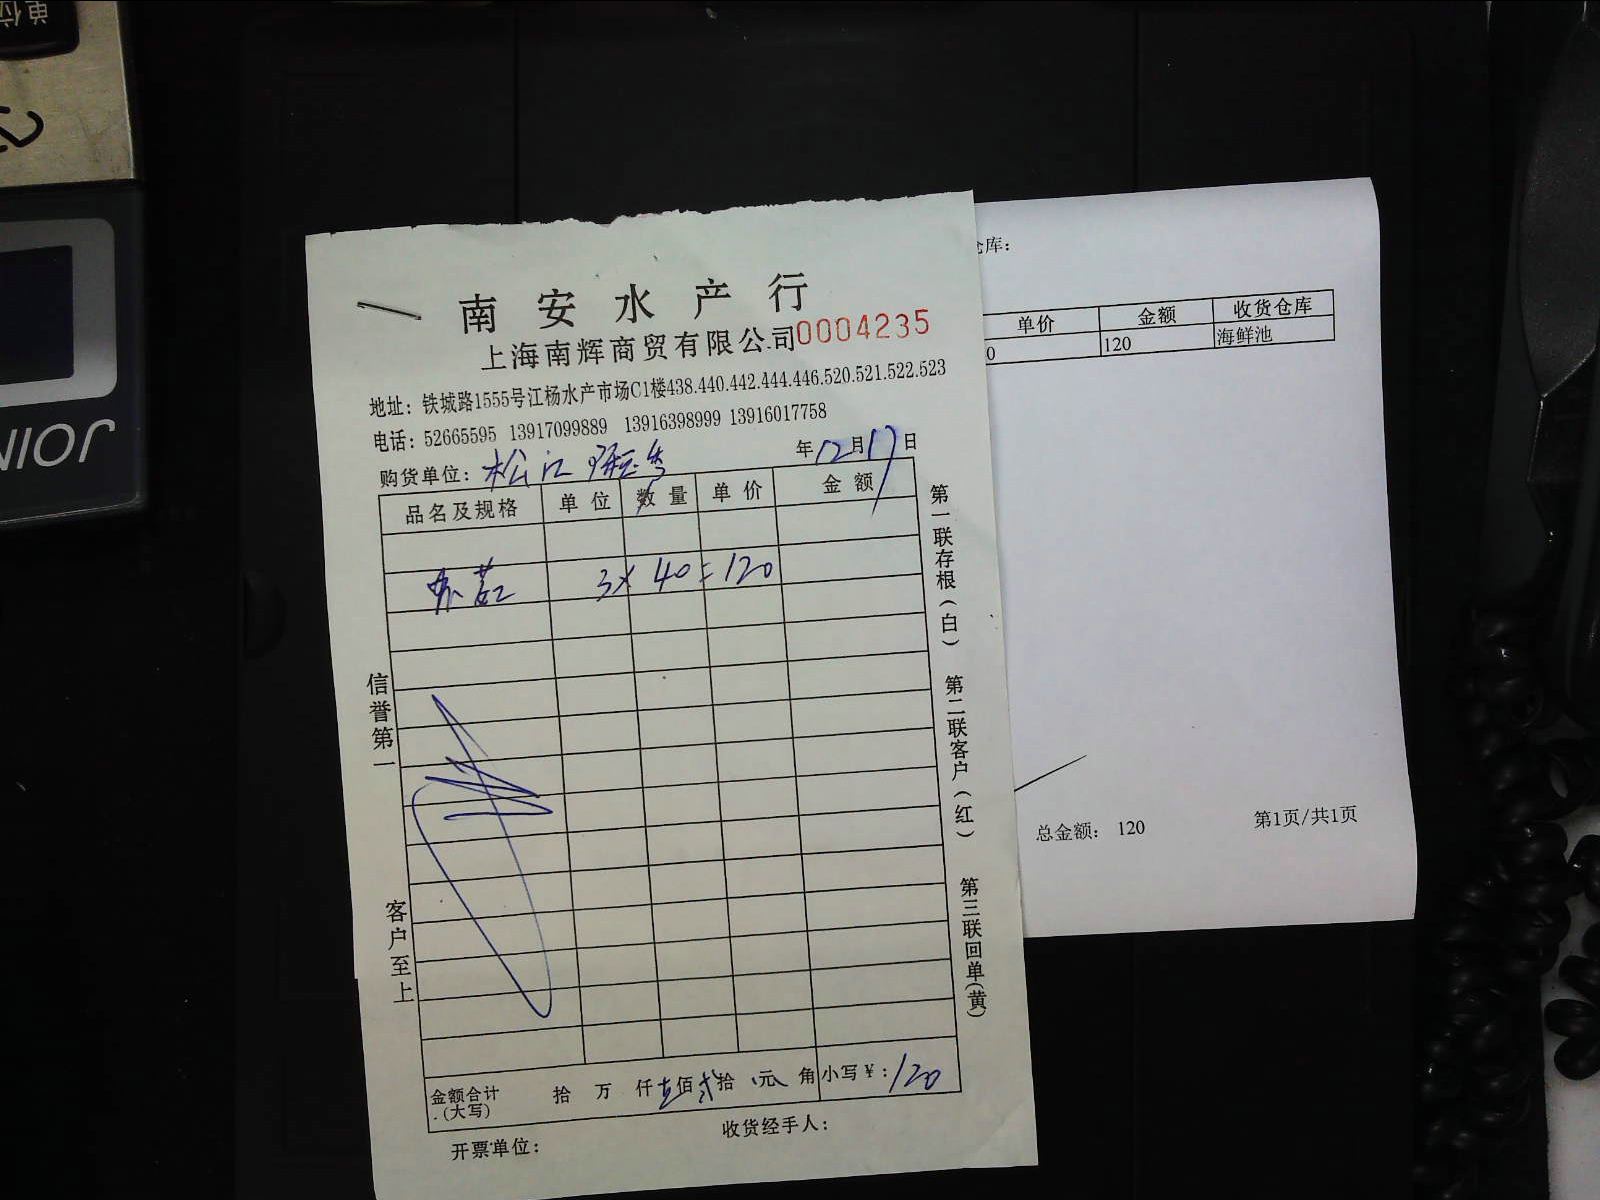 单位
JOIN
南安水产行
上海南辉商贸有限公司0004235
地址：铁城路1555号江杨水产市场C1楼438.440.442.444.446.520.521.522.523
电话：52665595 13917099889 13916398999 13916017758
购货单位：松江 年12月17日
品名及规格 单位 数量 单价 金额
3×40=120
信誉第一
客户至上
第一联存根(白)
第二联客户(红)
第三联回单(黄)
金额合计(大写) 拾 万 仟 壹佰 贰拾 元 角 小写¥：120
开票单位：
收货经手人：
仓库：
单价 金额 收货仓库
0 120 海鲜池
总金额： 120
第1页/共1页